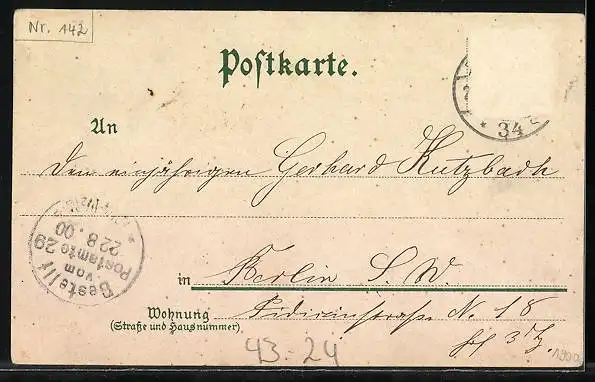 Nr. 142
Postkarte.
34
An
Den einjährigen Gerhard Kutzbach
Bestellt
vom
Postamte 29
22 8.00
in Berlin S. W.
Wohnung
(Straße und Hausnummer)
N. 18
43-24
1900